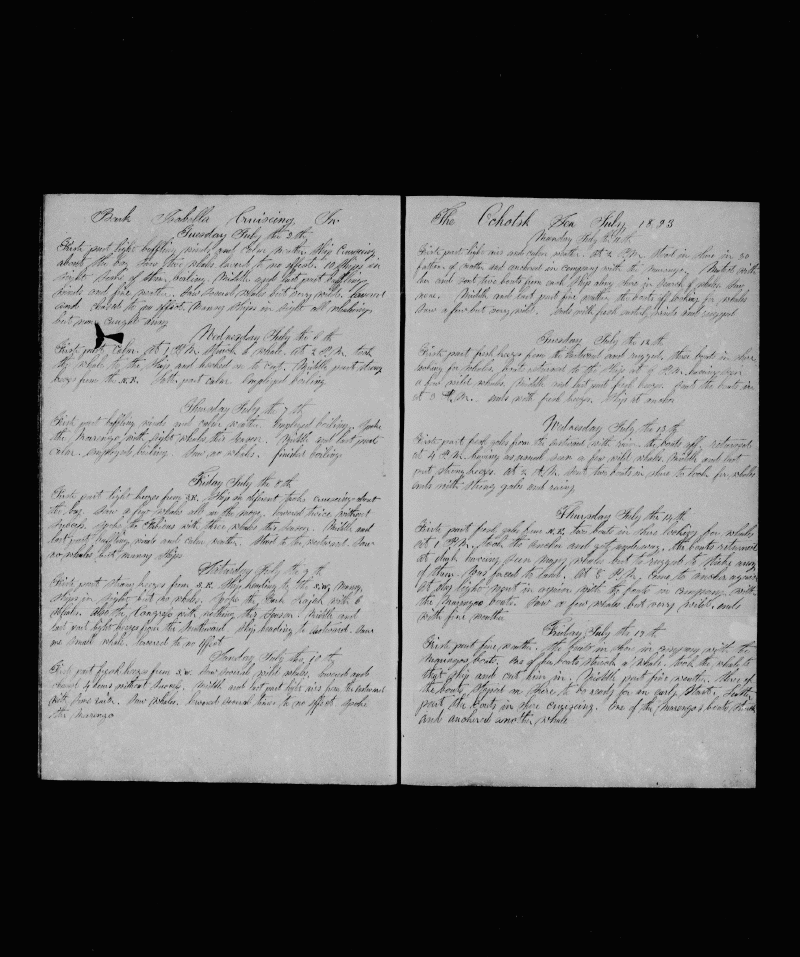 Bark Isabella Cruiseing In
Tuesday July the 5th
First part light baffling winds and calm wather Ship Cruiseing
about the bay. Saw whales lowerd to no effect. 10 Ships in
sight of them boiling. Middle and last part baffling
winds and fine wather. Saw several whales but very wild. Lowered
and to no effect. Many Ships in sight all whaleing
but none Caught Any
Wednesday July the 6th
First part Calm. At 1 P.M. Struck a whale. At 2 P.M. took
the whale to the Ship and hooked on to cut. Middle part strong
breeze from the N.E. Last part calm. Employed boiling
Thursday July the 7th
First part baffling winds and calm wather. Employed boiling. Spoke
the Marengo with eight whales this Season. Middle and last part
calm. Employed boiling. Saw no whales. finished boiling
Friday July the 8th
First part light breeze from N.E. Ship on diferent tacks cruiseing about
the bay. Saw a few whales all on the move. lowered twice without
Success. Spoke the Fabius with three whales this Season. Middle and
last part baffling winds and calm wather. Stood to the westward. Saw
no whales but manny Ships
Saturday July the 9th
First part Strong breeze from S.E. Ship heading to the N.W. Manny
Ships in sight but no whales. Spoke the Bark Rajah with 6
whales. Also the Congress with nothing this Season. Middle and
last part light breeze from the Southward. Ship heading to Westward. Saw
one Small whale. lowered to no effect
Sunday July the 10th
First part fresh breeze from S.W. Saw Several wild whales. Lowered and
4 times without Success. Middle and last part light airs from the Eastward
with fine wather. Saw whales. lowered several times to no effect. Spoke
the Marengo
The Ochotsk Sea July 1853
Monday July the 11th
First part light airs and calm wather. At 2 P.M. Stood in shore in 20
fathom of water and anchored in company with the Marengo. Mated with
her and sent two boats from each Ship along shore in Search of whales. Saw
none. Middle and last part fine wather, the boats off looking for whales
Saw a few but very wild. Ends with fresh easterly winds and rugged
Tuesday July the 12th
First part fresh breeze from the Eastward and rugged, three boats in shore
looking for whales, boats returned to the Ship at 9 P.M. haveing seen
a few wild whales. Middle and last part fresh breeze. Sent the boats in
at 3 A.M. ends with fresh breeze. Ship at anchor
Wednesday July the 13th
First part fresh gales from the eastward with rain. the boats off, returned
at 4 P.M. haveing as usual seen a few wild whales. Middle and last
part strong breeze. At 2 A.M. sent two boats in shore to look for whales
ends with strong gales and rainy
Thursday July the 14th
First part fresh gales from N.E. two boats in shore looking for whales
At 1 P.M. took the anchor and got underway. The boats returned
at 4 haveing Seen Many whales but to rugged to Strike any
of them. Was forced to land. At 8 P.M. Came to anchor again
At day light went in again with the boats in company with
the Marengos boats. Saw a few whales but very wild. ends
with fine wather
Friday July the 15th
First part fine wather. The boats in shore in company with the
Marengos boats. One of her boats Struck a whale. Took the whale to
thyr Ship and cut him in. Middle part fine wather. three of
the boats Stoped in Shore to be ready for an early Start. Last
part the boats in shore cruiseing. One of the Marengos boats Struck
and anchored another whale